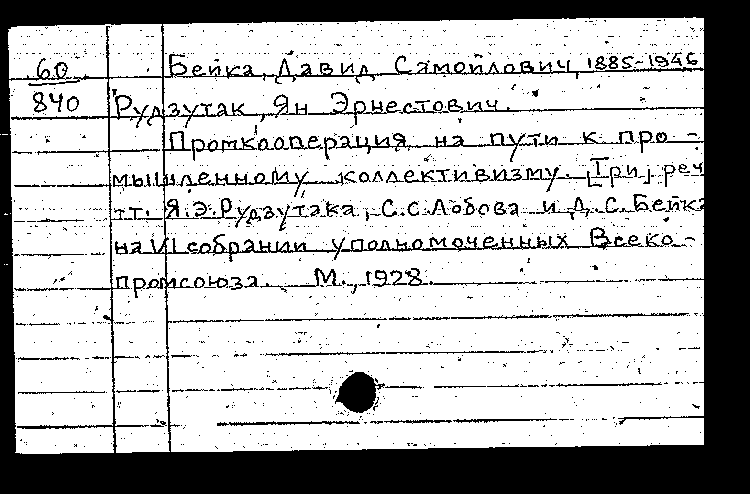 60 Бейка, Давид Самойлович, 1885-1946
840 Рудзутак, Ян Эрнестович.
Промкооперация на пути к про-
мышленному коллективизму. [Три] реч
тт. Я.Э.Рудзутака, С.С.Лобова и Д.С.Бейка
на VI собрании уполномоченных Всеко-
промсоюза. М., 1928.